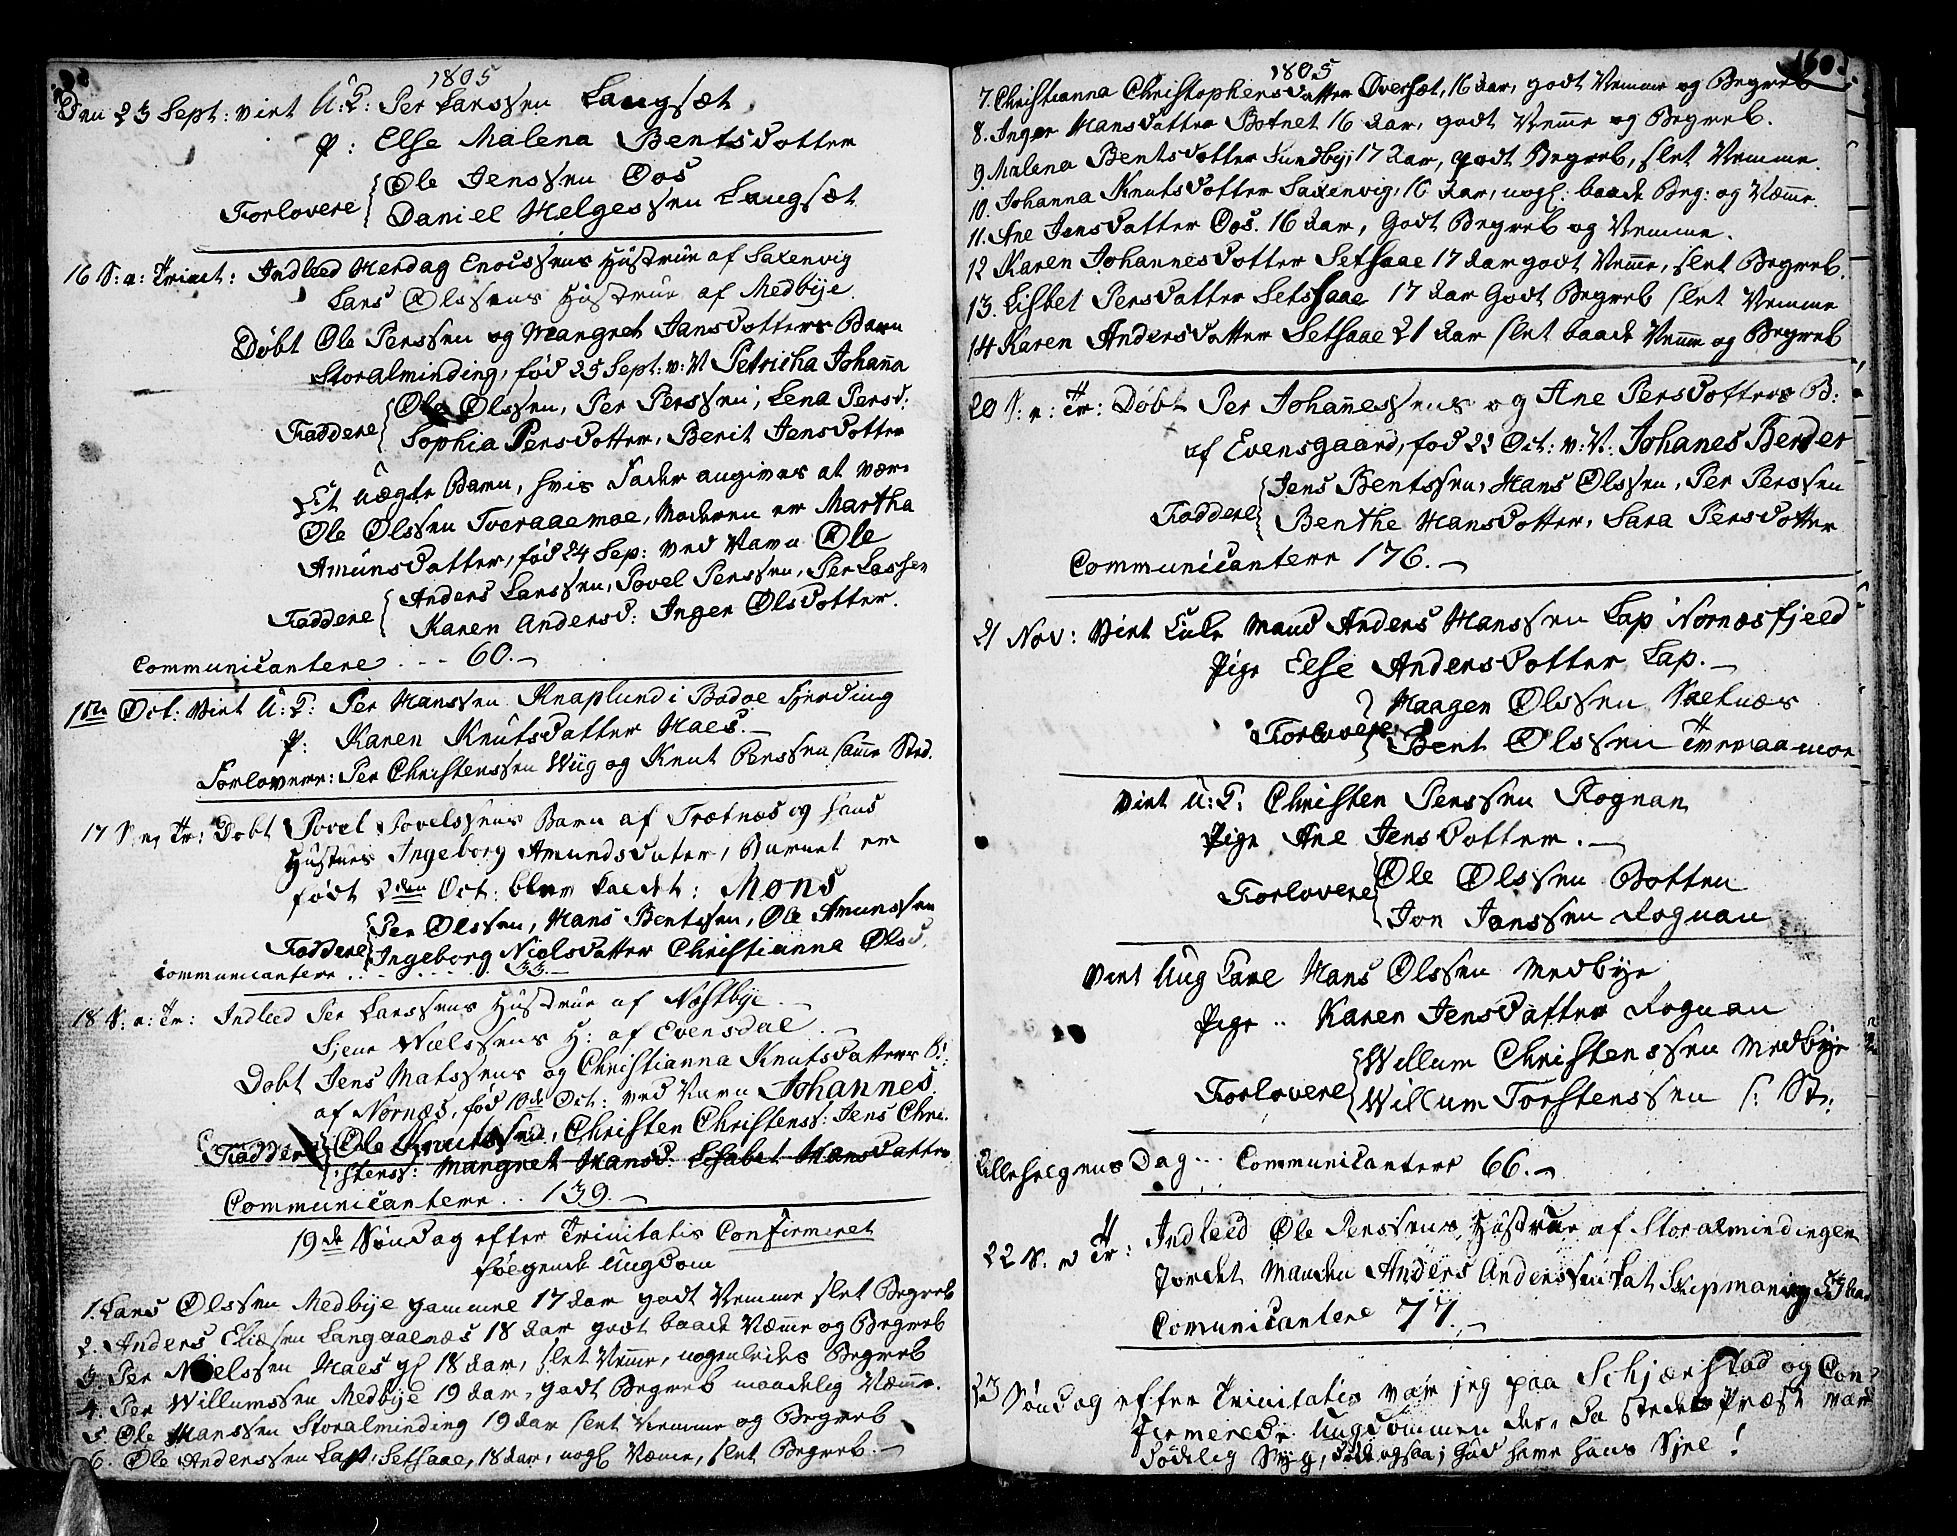 1805
Den 23 Sept: viet U: K: Per Larssen Langsæt
P: Else Malena Bentsdotter
Ole Jenssen Oos
Forlovere Daniel Helgessen Langsæt
16 S: a: Trinit: Indleed Herdag Enocssens Hustrue af Saxenvig
Lars Olssens Hustrue af Medbye
Døbt Ole Perssen og Mangret Jansdotters Barn
Storalminding, fød 25 Sept: v: N Petricha Johanna
Ole Olssen, Per Perssen, Lena Persd:
Faddere Sophia Persdotter, Berit Jensdotter
Et Uægte Barn, hvis Fader angives at være
Ole Olssen Tveraaemoe, Moderen er Martha
Amunsdatter, fød 24 Sep: ved Navn Ole
Anders Larssen, Povel Perssen, Per Larssen
Faddere Karen Andersd: Inger Olsdotter.
Communicantere . - - 60. -
15de Oct: Viet U: K: Per Hanssen Knaplund i Bodøe Fjerding
P: Karen Knutsdatter Naes. -
Forlovere: Per Christenssen Wiig og Knut Perssen samme Sted.
17 S. n. Tr: Døbt Povel Povelssens Barn af Trætnæs og hans
Hustrues Ingeborg Amundsdater, Barnet er
født 2den Oct: blev kaldet: Mons
Per Olssen, Hans Bentssen, Ole Amunssen
Faddere Ingeborg Nielsdatter Christianna Olsd.
Communicantere . . - . . . . . 33 -
18 S: a: Tr: Indleed Per Larssens Hustrue af Næstbye. -
Sjene Nielssens H: af Evensdal . -
Døbt Jens Matssens og Christianna Knutsdatters B:
af Nornæs, fød 10de Oct: ved Navn Johannes
Ole Knutssen, Christen Christenss: Jens Chri-
Faddere stenss: Mangret Hansd. Lisabet Hansdatter
Communicantere . . 139. -
19de Søndag efter Trinitatis Confirmeret
følgende Ungdom
1. Lars Olssen Medbye gammel 17 Aar godt Nemme slet Begreb
2. Anders Eliæsen Langaaenæs 18 Aar godt baade Næmme og Begreb
3. Per Nielssen Naes gl 18 Aar, slet Nemme, nogenledes Begreb
4. Per Willumssen Medbye 19 Aar, godt Begreb maadelig Næmme.
5 Ole Hanssen Storalminding 19 Aar slet Nemme og Begreb
6. Ole Anderssen Lap, Setsaae, 18 Aar, nogl Næme, slet Begreb. -
1805
160.
7. Christianna Christophersdatter Oversæt, 16 Aar, godt Nemme og Begreb
8. Inger Hansdatter Botnet 16 Aar, godt Nemme og Begreb.
9. Malena Bentsdotter Sundby, 17 Aar, godt Begreb, slet Nemme.
10. Johanna Knutsdotter Saxenvig, 16 Aar, nogl. baade Beg: og Næmme.
11. Ane Jensdatter Oos. 16 Aar, Godt Begreb og Nemme.
12 Karen Johannesdotter Setsaae 17 Aar godt Nemme, slet Begreb.
13. Lisbet Persdatter Setssaae 17 Aar Godt Begreb slet Nemme
14 Karen Andersdatter Setsaae 21 Aar slet baade Nemme og Begreb
20 S: n: Tr: Døbt Per Johannessens og Ane Persdotters B:
af Evensgaard, fød 22 Oct: v: N. Johanes Berder
Jens Bentssen, Hans Olssen, Per Perssen
Faddere Benthe Hansdotter, Sara Persdotter
Communicantere 176. -
21 Nov: Viet Enke Mand Anders Hanssen Lap Nornæsfjeld
Pige Else Andersdotter Lap. -
Haagen Olssen Saetnæs
Forlovere Bent Olssen Tveraamoe
Viet U: K: Christen Penssen Rognan
Pige Ane Jensdotter. -
Ole Olssen Botten
Forlovere Jon Janssen Rognan
Viet Ung Karl Hans Olssen Medbye
Pige .. Karen Jensdatter Rognan
Willum Christenssen Medbye
Forlovere Willum Torstenssen s: St:
Allehelgens Dag . . . Communicantere 66. -
22 S. n Tr: Indleed Ole Penssens Hustrue af Storalmindingen
Jordet Manden Anders Anderssen Skipmanvig
Comunicantere 77. -
23 Søndag efter Trinitatis var jeg paa Schjærstad og Con-
firmerede Ungdommen der, da Stedets Præst var
dødelig Syg, døde ogsaa; Gud have hans Sjel!